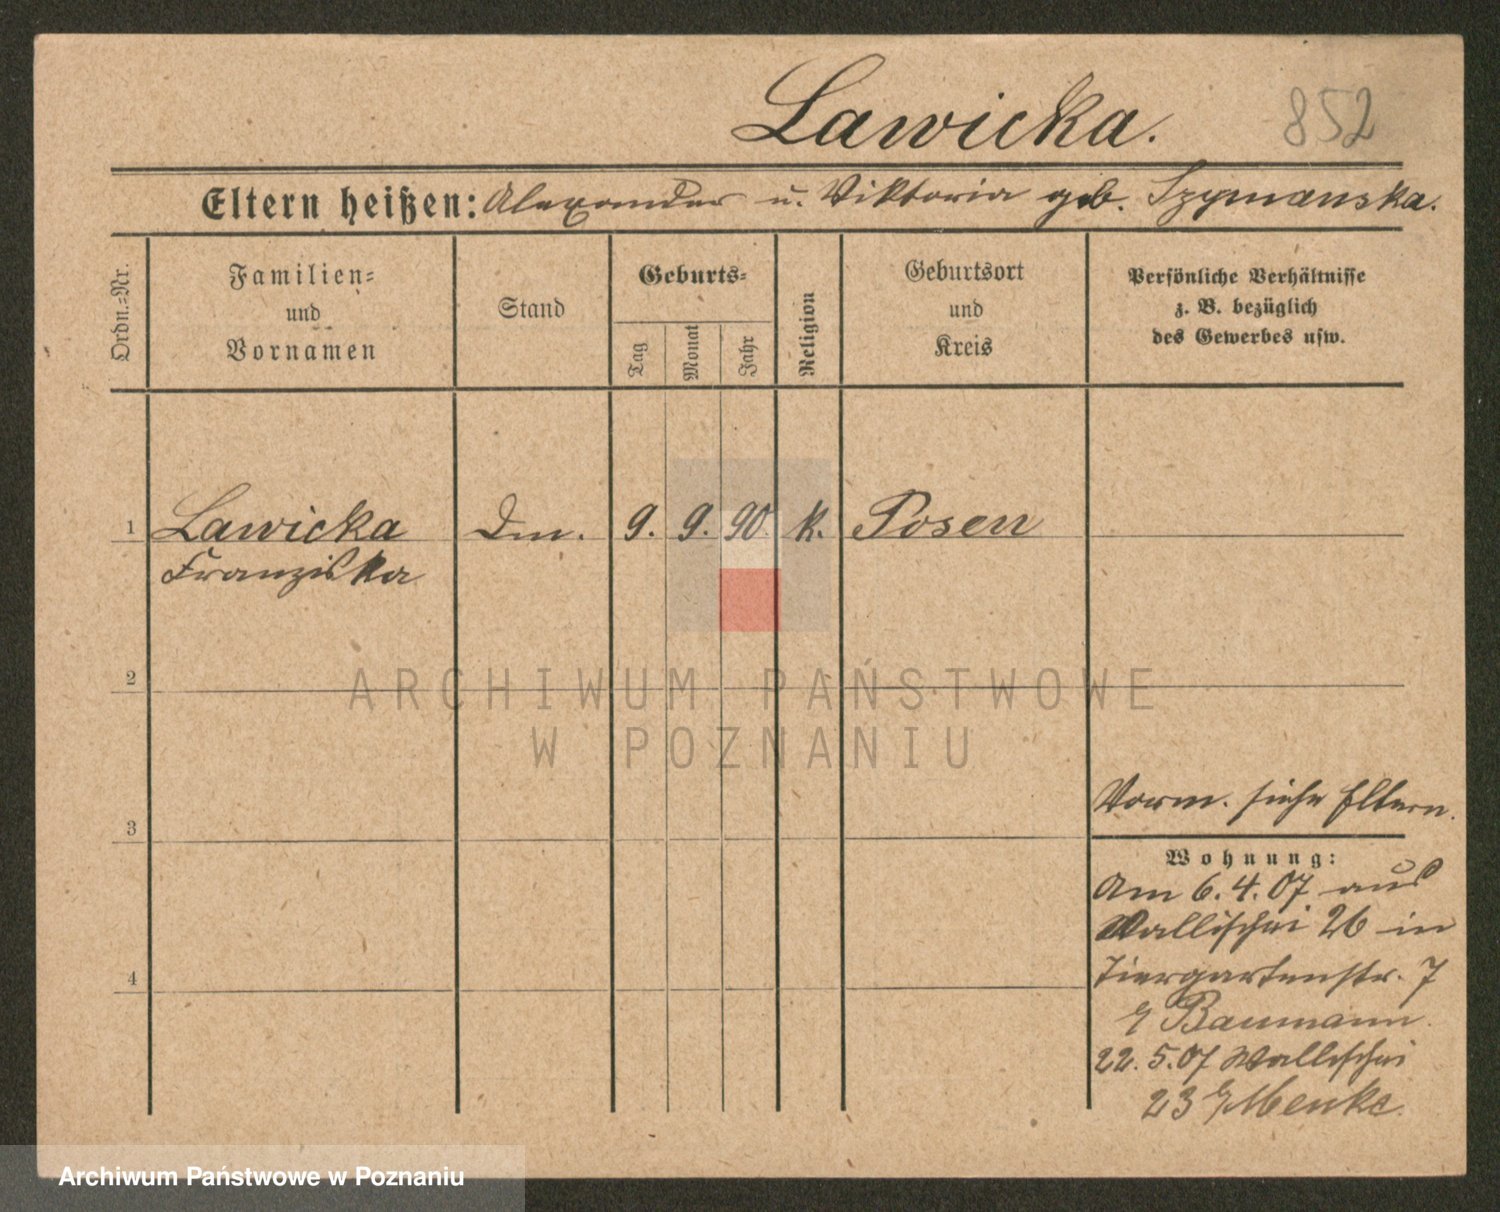 Lawicka.
852
Eltern heißen: Alexander u. Viktoria geb. Szymanska.
Ordn.=Nr.
Familien=
und
Vornamen
Stand
Geburts=
Tag
Monat
Jahr
Religion
Geburtsort
und
Kreis
Persönliche Verhältnisse
z. B. bezüglich
des Gewerbes usw.
1 Lawicka Dm. 9. 9. 90. k. Posen
Franziska
2
ARCHIWUM PAŃSTWOWE
W POZNANIU
3
Vorm. siehe Eltern.
Wohnung:
Am 6. 4. 07 aus
Wallischei 26 in
4
Tiergartenstr. 7
Baumann.
22. 5. 07 Wallischei
23 Menke.
Archiwum Państwowe w Poznaniu